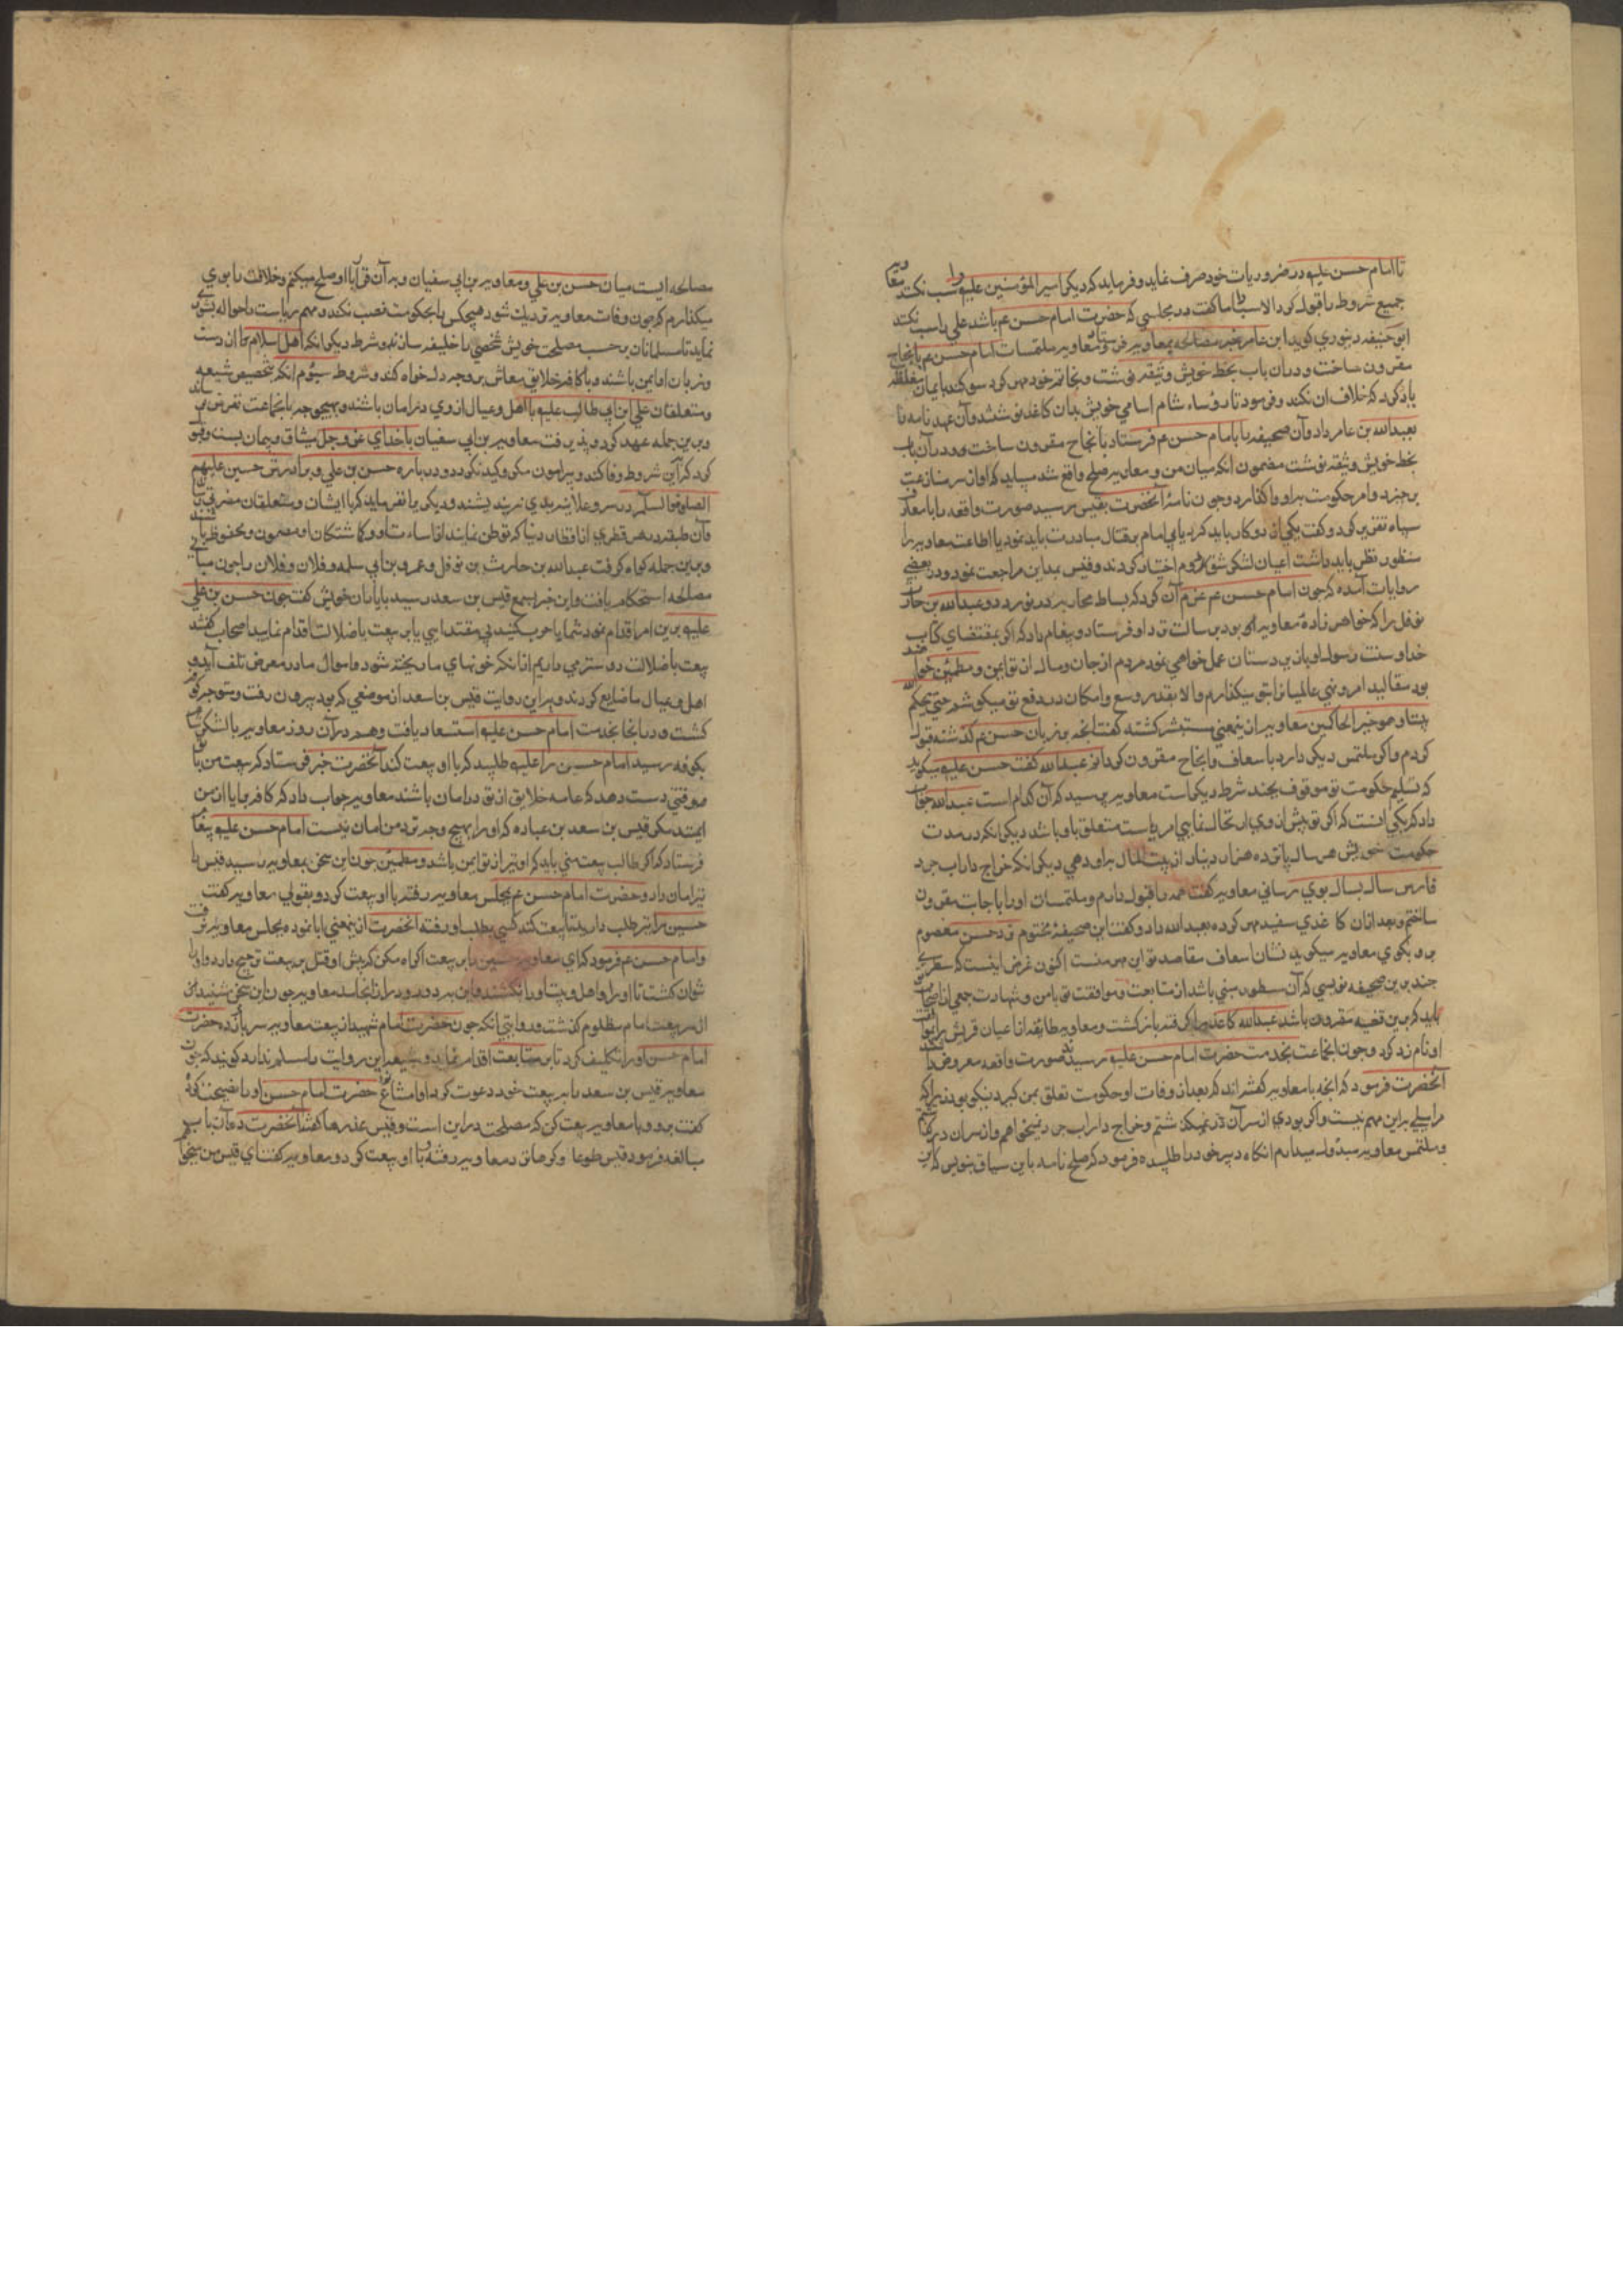 تا امام حسن علیه در ضروریات خود صرف نماید و فرماید که دیگر امیر المؤمنین علیه را سب نکند معاویه
جمیع شروط را قبول کرد الا سب اما گفت در مجلسی که حضرت امام حسن ع باشد علی را سب نکند
ابو حنیفه دینوری گوید ابن عامر خبر مصالحه بمعاویه فرستاد معاویه ملتمسات امام حسن ع بانجاح
مقرون ساخت و در ان باب بخط خویش وثیقه نوشت و بخاتم خود مهر کرد سوکند بایمان مغلظه
یاد کرد که خلاف ان نکند و فرمود تا رؤساء شام اسامی خویش بدان کاغذ نوشتند و آن عهد نامه را
بعبدالله بن عامر داد و آن صحیفه را بامام حسن ع فرستاد بانجاح مقرون ساخت و در آن باب
بخط خویش وثیقه نوشت مضمون انکه میان من و معاویه صلح واقع شد میباید که او از سر منازعت
برخیزد و امر حکومت براو واکذارد و چون نامۀ آنحضرت بقیس رسید صورت واقعه را با معارف
سپاه تقریر کرد و گفت یکی از دو کار باید کرد یا بی امام بر قتال مبادرت باید نمود یا اطاعت معاویه را
منظور نظر باید داشت اعیان لشکر شق دوم اختیار کردند و قیس بمداین مراجعت نمود و در بعضی
روایات آمده که چون امام حسن ع عزم آن کرد که بساط محاربه در نوردد و عبدالله بن حارث
نوفل را که خواهر زادۀ معاویه بود برسالت نزد او فرستاد و پیغام داد که اگر بمقتضای کتاب
خدا و سنت رسول او با زیر دستان عمل خواهی نمود مردم از جان و مال از تو ایمن و مطمئن خواهند
بود مقالید امر و نهی عالمیان را بتو میکذارم والا بقدر وسع و امکان در دفع تو میکوشم حتی یحکم الله
بیننا و هو خیر الحاکمین معاویه از ینمعنی مستبشر کشته گفت انچه بر زبان حسن ع کذشته قبول
کردم و اکر ملتمس دیگر دارد باسعاف و انجاح مقرون کردانم عبدالله گفت حسن علیه میکوید
که تسلیم حکومت تو موقوف بچند شرط دیکر است معاویه پرسید که آن کدام است عبدالله جواب
داد که یکی انست که اکر تو پیش از وی ارتحال نمایی امر ریاست متعلق باو باشد دیکر انکه در مدت
حکومت خویش هر سال پانزده هزار دینار از بیت المال براو دهی دیکر انکه خراج داراب جرد
فارس سال بسال بوی رسانی معاویه گفت همه را قبول دارم و ملتمسات او را باجابت مقرون
ساختم و بعد ازان کاغذی سفید مهر کرده بعبدالله داد و کفت این صحیفۀ مختوم نزد حسن معصوم
بر و بکوی معاویه میکوید نشان اسعاف مقاصد تو این مهر منست اکنون غرض اینست که
چند برین صحیفه نویسی که آن سطور مبنی باشد از متابعت و موافقت تو با من و شهادت جمعی از اصحاب
باید که برین قضیه مقرون باشد عبدالله کاغذ را گرفته باز کشت و معاویه طایفه از اعیان قریش را
او نام زد کرد و چون انجماعت بخدمت حضرت امام حسن علیه رسیدند صورت واقعه معروض
آنحضرت فرمود که انچه با معاویه کفته اند که بعد از وفات او حکومت تعلق بمن کیرد نیکو بود زیرا که
مرا میلی براین مهم نیست و اکر بودی از سر آن در نمیکذشتم و خراج داراب جرد نمیخواهم و از سر ان در کذشتم
و ملتمس معاویه مبذول میدارم انکاه دبیر خود را طلبیده فرمود که صلح نامه باین سیاق بنویس که این
مصالحه ایست میان حسن بن علی و معاویه بن ابی سفیان و بر آن قرار با او صلح میکنم و خلافت را بوی
میکذارم که چون وفات معاویه نزدیک شود هیچکس را بحکومت نصب نکند و مهم ریاست را حواله بشوری
نماید تا مسلمانان بر حسب مصلحت خویش شخصی را خلیفه سازند و شرط دیکر انکه اهل اسلام از دست
و زبان او ایمن باشند و با کافه خلایق معاش بر وجه دلخواه کند و شروط سیوم انکه تخصیص شیعه
و متعلقان علی ابن ابی طالب علیه با اهل و عیال از وی در امان باشند و بهیچ وجه بانجماعت تعرض نرساند
و برین جمله عهد کرد و پذیرفت معاویه بن ابی سفیان با خدای عز و جل میثاق و پیمان بست و قبول
کرد که آن شروط وفا کند و پیرامون مکر و کید نکردد و درباره حسن بن علی و برادرش حسین علیهم
الصلوة والسلام در سر و علانیه بدی نیندیشند و دیکر با ایشان و متعلقان
و آن طبقه در هر قطری از اقطار دنیا که توطن نمایند از اساءت او و کماشتکان او مصون و محفوظ باشند
و براین جمله کواه کرفت عبدالله بن حارث بن نوفل و عمرو بن ابی سلمه و فلان و فلان را چون مبانی
مصالحه استحکام یافت و این خبر بسمع قیس بن سعد رسید با یاران خویش کفت چون حسن بن علی
علیه برین امر اقدام نمود شما یا حرب کنید بی مقتدایی یا بر بیعت با ضلالت اقدام نمایید اصحاب کفتند
بیعت با ضلالت دوستر می داریم از انکه خونهای ما ریخته شود و اموال ما در معرض تلف آید و
اهل و عیال ما ضایع کردند و براین روایت قیس بن سعد از موضعی که بود بیرون رفت و متوجه کوفه
کشت و در انجا بخدمت امام حسن علیه استسعاد یافت و هم در آن روز معاویه با لشکر شام
بکوفه رسید امام حسین را علیه طلبید که با او بیعت کند آنحضرت خبر فرستاد که بیعت من با تو
موقتی دست دهد که عامه خلایق از تو در امان باشند معاویه جواب داد که کافه برایا از من
ایمنند مکر قیس بن سعد بن عباده که او را بهیچ وجه نزد من امان نیست امام حسن علیه پیغام
فرستاد که اکر طالب بیعت منی باید که او نیز از تو ایمن باشد و مطمئن چون این سخن بمعاویه رسید قیس را
نیز امان داد و حضرت امام حسن ع بمجلس معاویه رفته با او بیعت کرد و بقولی معاویه کفت
حسین را نیز طلب دارید تا بیعت کند کسی بطلب او رفته انحضرت از ینمعنی ابا نموده بمجلس معاویه نرفت
و امام حسن ع فرمود که ای معاویه حسین را بر بیعت اکراه مکن که پیش او قتل بر بیعت ترجیح دارد و او را
نتوان کشت تا او را و اهل بیت او را نکشند معاویه چون این سخن شنید از
سر بیعت امام مظلوم کذشت و روایتی انکه چون حضرت امام شهید از بیعت معاویه سر باز زد حضرت
امام حسن او را تکلیف کرد تا بر متابعت اقدام نماید و شیعه این روایت را مسلم ندارد کویند که چون
معاویه قیس بن سعد را به بیعت خود دعوت کرد او امتناع نمود حضرت امام حسن او را نصیحت کرد
کفت برو و با معاویه بیعت کن که مصلحت در این است و قیس عذرها کفت آنحضرت در آن باب
مبالغه فرمود قیس طوعا و کرها نزد معاویه رفته با او بیعت کرد و معاویه کفت ای قیس من